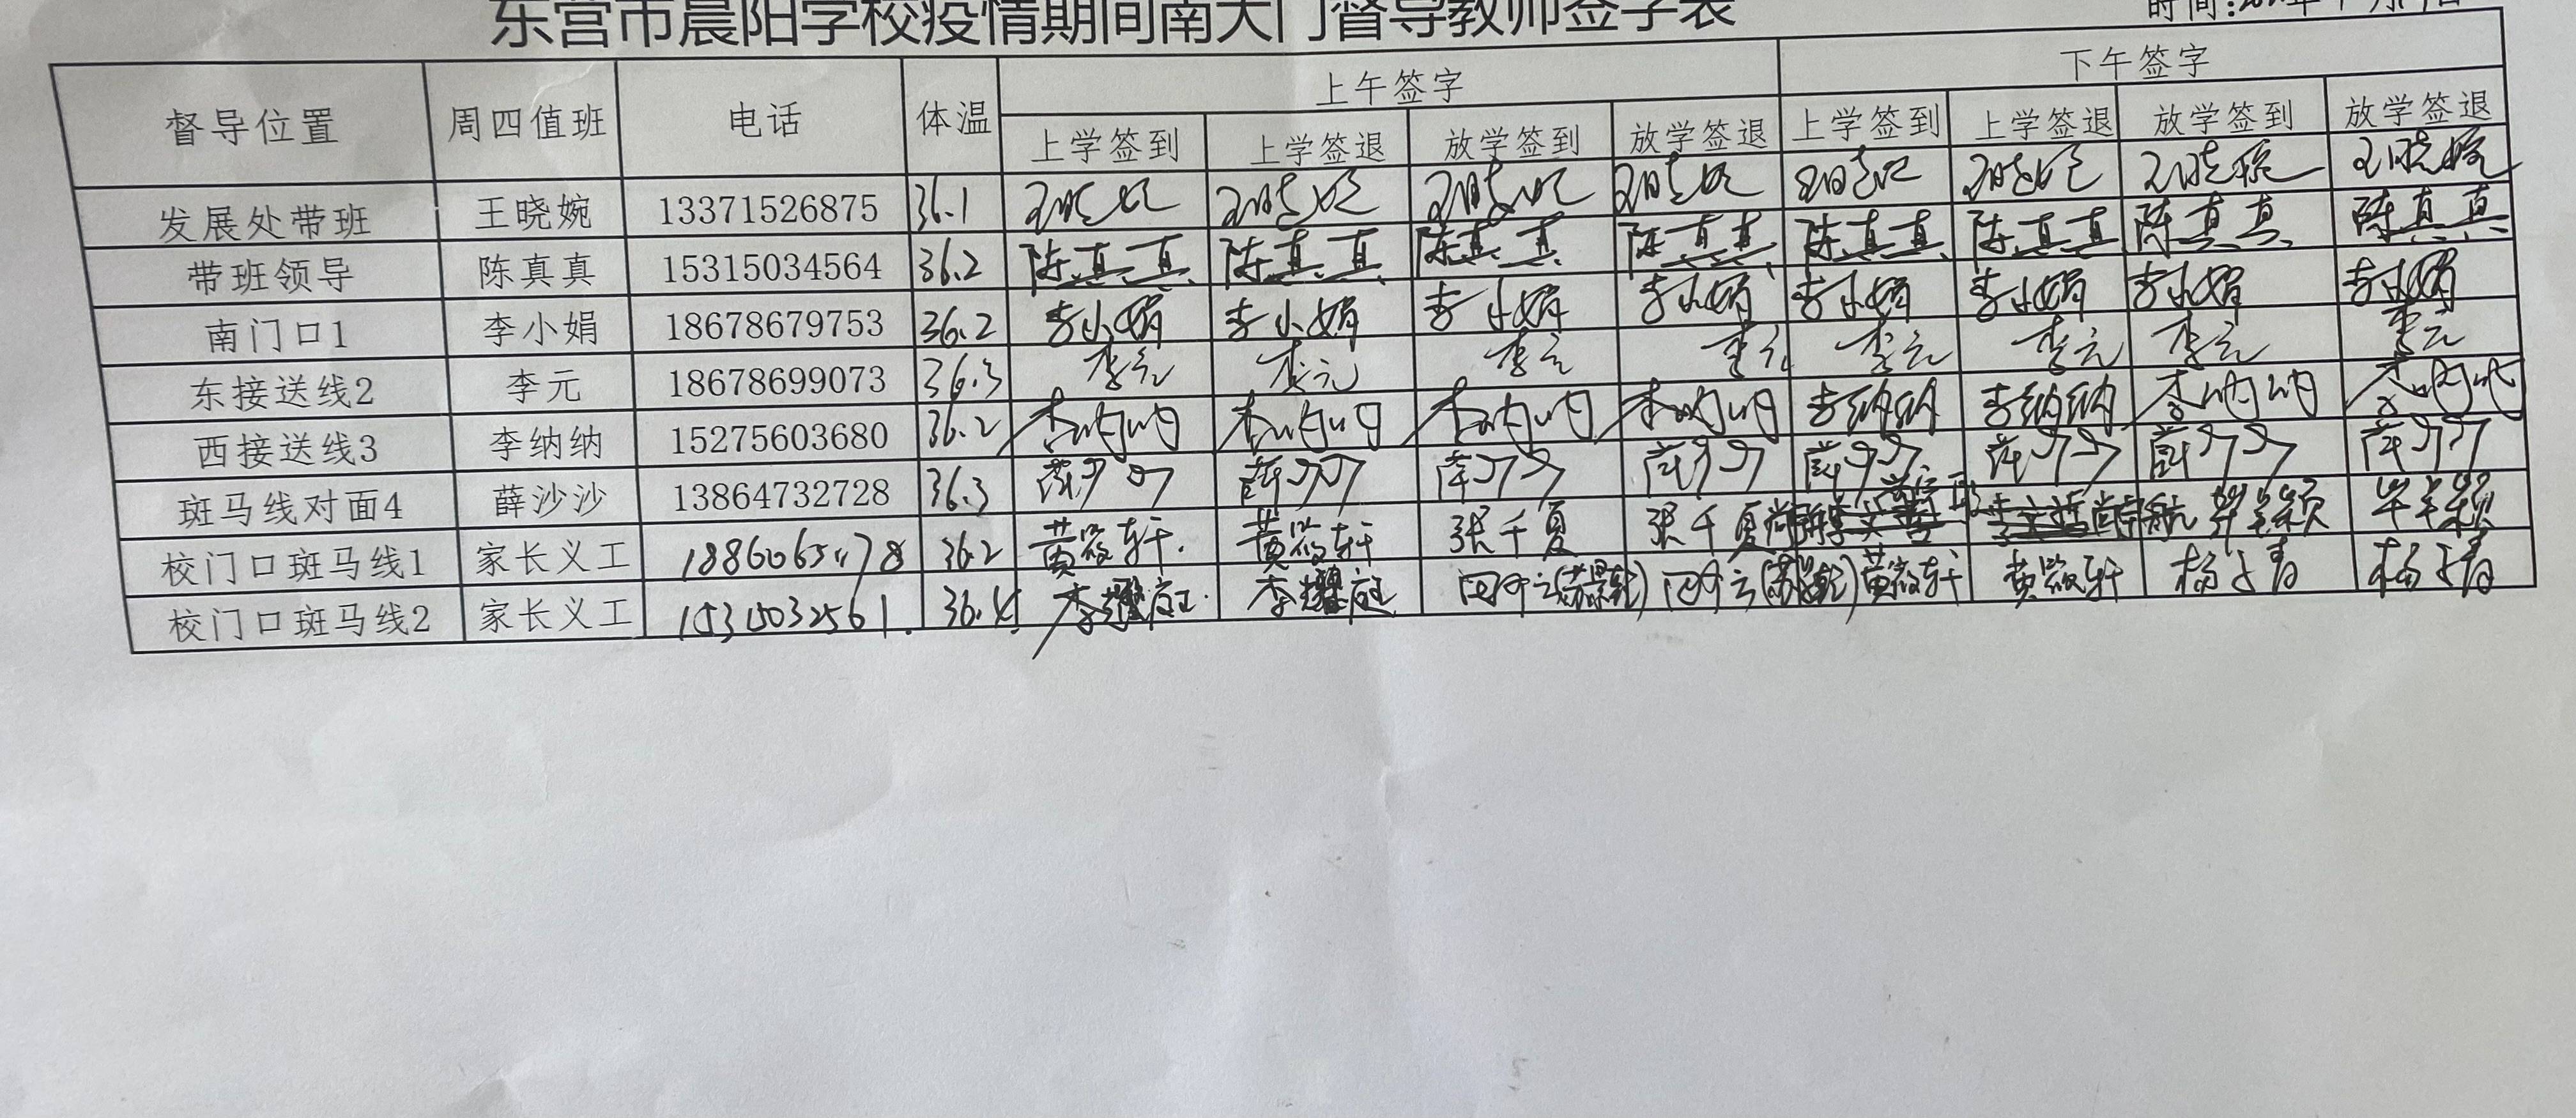 东营市晨阳学校疫情期间南大门督导教师签字表
时间:
督导位置 周四值班 电话 体温 上午签字 下午签字
上学签到 上学签退 放学签到 放学签退 上学签到 上学签退 放学签到 放学签退
发展处带班 王晓婉 13371526875 36.1 王晓婉 王晓婉 王晓婉 王晓婉 王晓婉 王晓婉 王晓婉 王晓婉
带班领导 陈真真 15315034564 36.2 陈真真 陈真真 陈真真 陈真真 陈真真 陈真真 陈真真 陈真真
南门口1 李小娟 18678679753 36.2 李小娟 李小娟 李小娟 李小娟 李小娟 李小娟 李小娟 李小娟
东接送线2 李元 18678699073 36.3 李元 李元 李元 李元 李元 李元 李元 李元
西接送线3 李纳纳 15275603680 36.2 李纳纳 李纳纳 李纳纳 李纳纳 李纳纳 李纳纳 李纳纳 李纳纳
斑马线对面4 薛沙沙 13864732728 36.3 薛沙沙 薛沙沙 薛沙沙 薛沙沙 薛沙沙 薛沙沙 薛沙沙 薛沙沙
校门口斑马线1 家长义工 36.2 黄筱轩 黄筱轩 张千夏 张千夏
校门口斑马线2 家长义工 15315032561 36.4 黄筱轩 黄筱轩